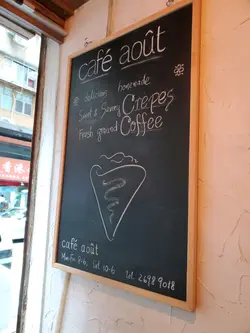 café août
delicious homemade
Sweet & Savory Crepes
Fresh ground Coffee
café août
Mon-Fri 8-6, Sat 10-6 Tel. 2698 9018
香港